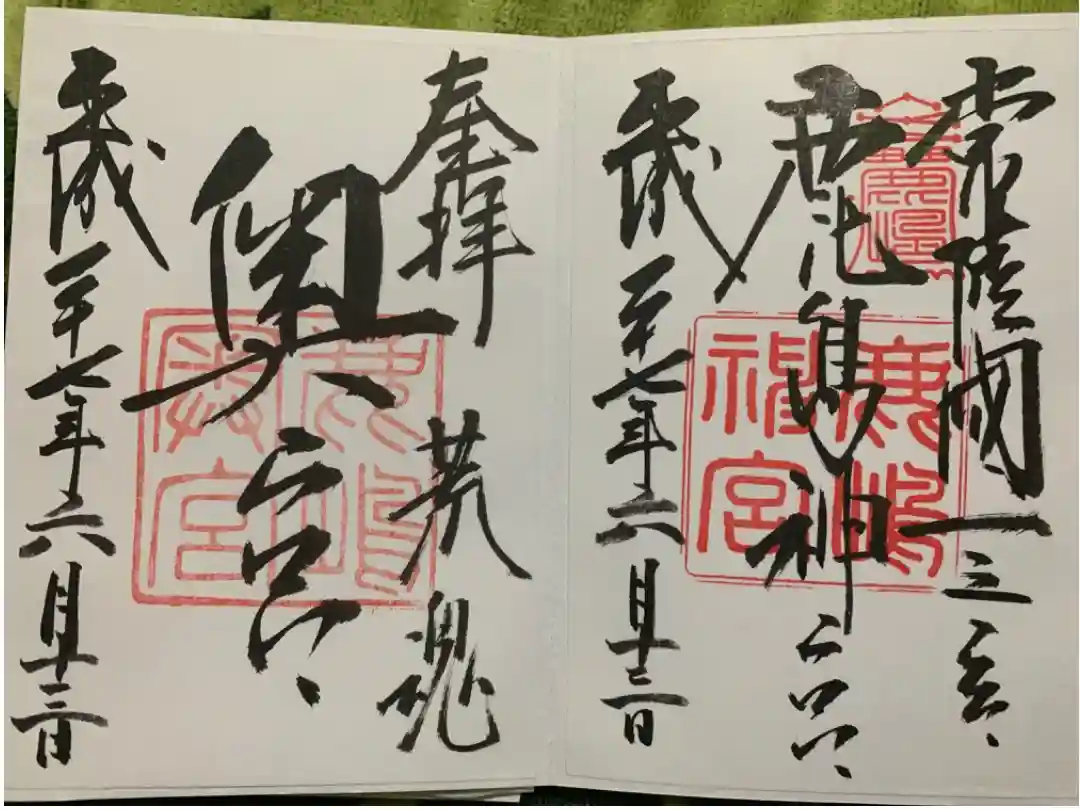 常陸國一之宮
鹿島神宮
平成二十七年六月十三日
鹿嶋
神宮
奉拝 荒魂
奥宮
平成二十七年六月十三日
鹿嶋
奥宮